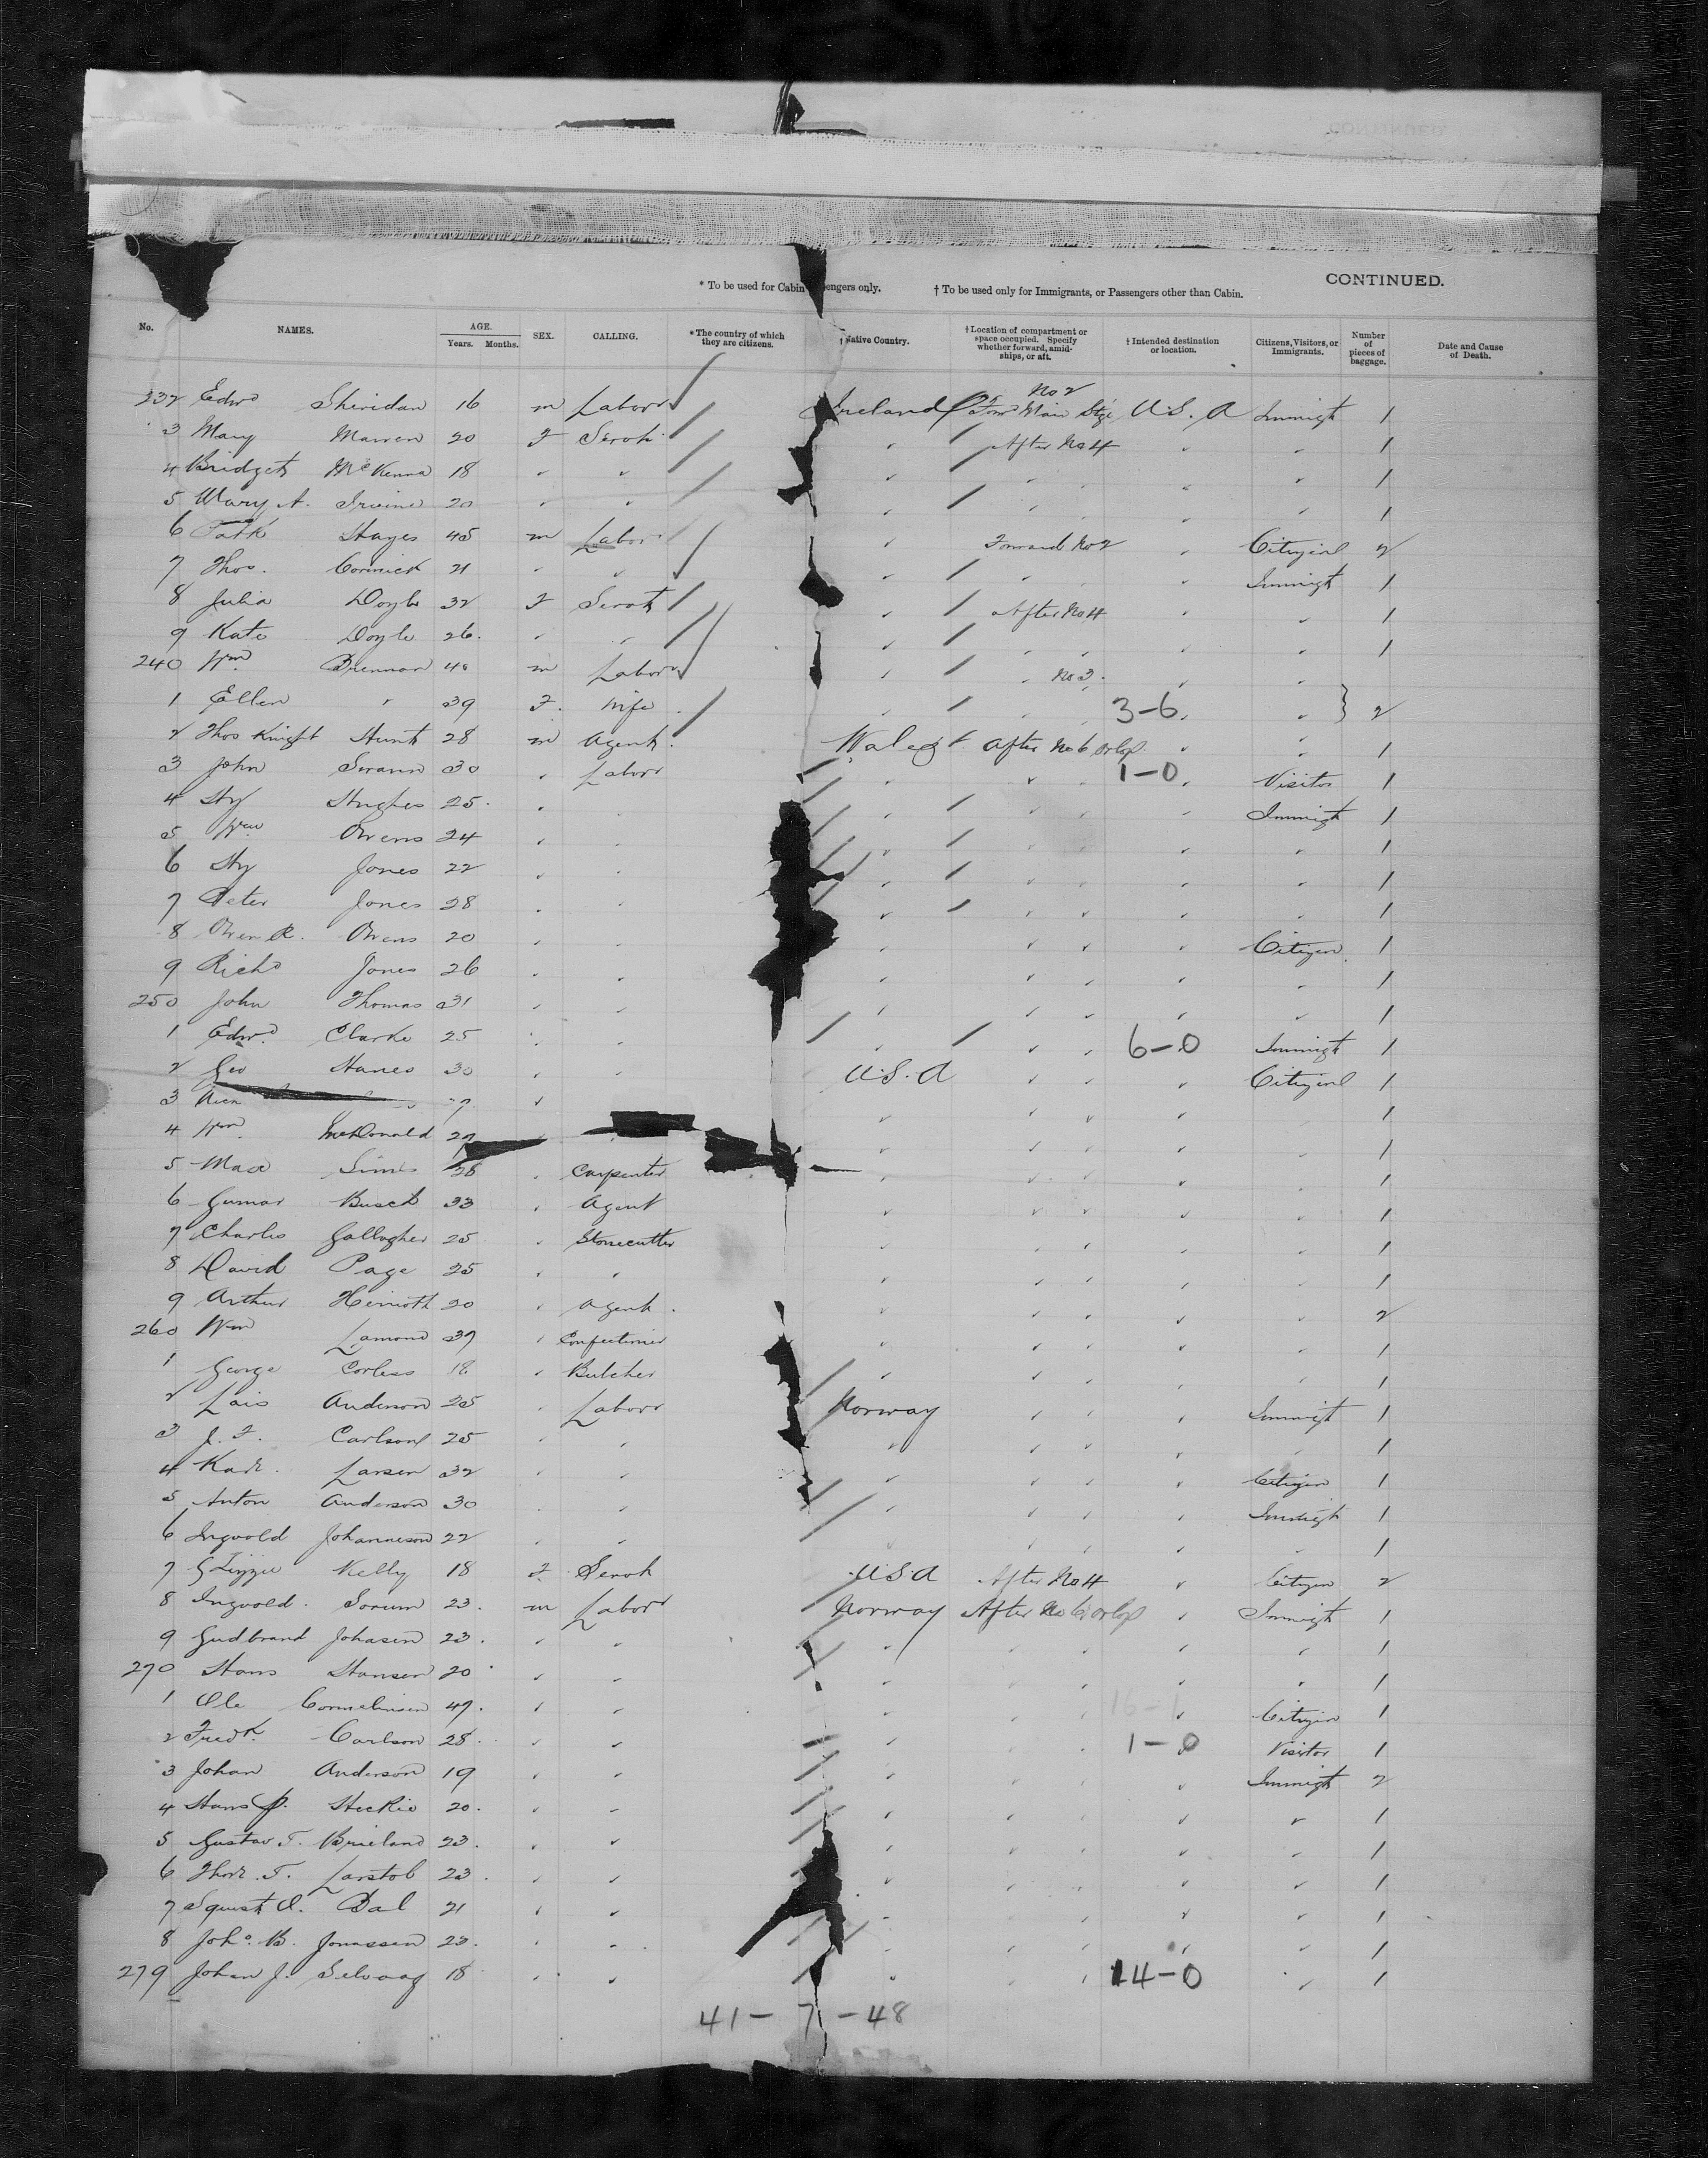 CONTINUED.
* To be used for Cabin engers only. † To be used only for Immigrants, or Passengers other than Cabin.
No. NAMES. AGE. Years. Months. SEX. CALLING. * The country of which they are citizens. Native Country. † Location of compartment or space occupied. Specify whether forward, amidships, or aft. † Intended destination or location. Citizens, Visitors, or Immigrants. Number of pieces of baggage. Date and Cause of Death.
232 Edwd Sheridan 16 m Labor Ireland No 2 Main Stge U.S.A Immigt 1
3 Mary 20 F Servt " After No 4 " " 1
4 Bridget McKenna 18 " " " " " " " 1
5 Mary A. Irvine 20 " " " " " " " 1
6 Patk Hayes 45 m Labor " Forward No 2 " Citizen 2
7 Thos. Cormick 21 " " " " " Immigt 1
8 Julia Doyle 32 F Servt " After No 4 " " 1
9 Kate Doyle 26 " " " " " " " 1
240 Wm Brennan 40 m Labor " " No 3 " "
1 Ellen " 39 F. Wife " " " 3-6 " } 2
2 Thos Knight Hunt 28 m Agent Wales After No 6 orlop " " 1
3 John Swann 30 " Labor " " " 1-0 Visitor 1
4 Hy Hughes 25 " " " " " " Immigt 1
5 Wm Owens 24 " " " " " " " 1
6 Hy Jones 22 " " " " " " " 1
7 Peter Jones 28 " " " " " " " 1
8 Owen R. Owens 20 " " " " " " Citizen 1
9 Richd Jones 26 " " " " " " " 1
250 John Thomas 31 " " " " " " " 1
1 Edwd. Clarke 25 " " " " " 6-0 Immigt 1
2 Geo Hanes 30 " " U.S.A " " " Citizen 1
3 " " " " " 1
4 Wm. McDonald 27 " " " " 1
5 Max Simes 28 " Carpenter " " " " " 1
6 Gumar Busch 33 " Agent " " " " " 1
7 Charles Gallagher 25 " Stonecutter " " " " " 1
8 David Page 25 " " " " " " " 1
9 Arthur 20 " Agent " " " " 2
260 Wm Lamond 37 " Confectioner " " " " " 1
1 George Corless 18 " Butcher " " " " " 1
2 Lars Anderson 25 " Labor Norway " " " Immigt 1
3 J. F. Carlson 25 " " " " " " " 1
4 Karl Larsen 32 " " " " " " Citizen 1
5 Anton Anderson 30 " " " " " " Immigt 1
6 Ingvold Johanneson 22 " " " " " " " 1
7 Lizzie Kelly 18 F. Servt U.S.A After No 4 " Citizen 2
8 Ingvold Sorum 23 m Labor Norway After No 6 orlop " Immigt 1
9 Gudbrand Johasen 23 " " " " " " " 1
270 Hans Hansen 20 " " " " " " " 1
1 Ole Cornelinsen 47 " " " " " 16-1 " Citizen 1
2 Fredk. Carlson 28 " " " " " 1-0 Visitor 1
3 Johan Anderson 19 " " " " " " Immigt 2
4 Hans P. 20 " " " " " " " 1
5 Gustav T. Brieland 23 " " " " " " " 1
6 Thor. T. 23 " " " " " " " 1
7 Dal 21 " " " " " " 1
8 Joho. B. Jonassen 23 " " " " " " " 1
279 Johan J. Selvaag 18 " " " " " 14-0 " 1
41- 7 -48